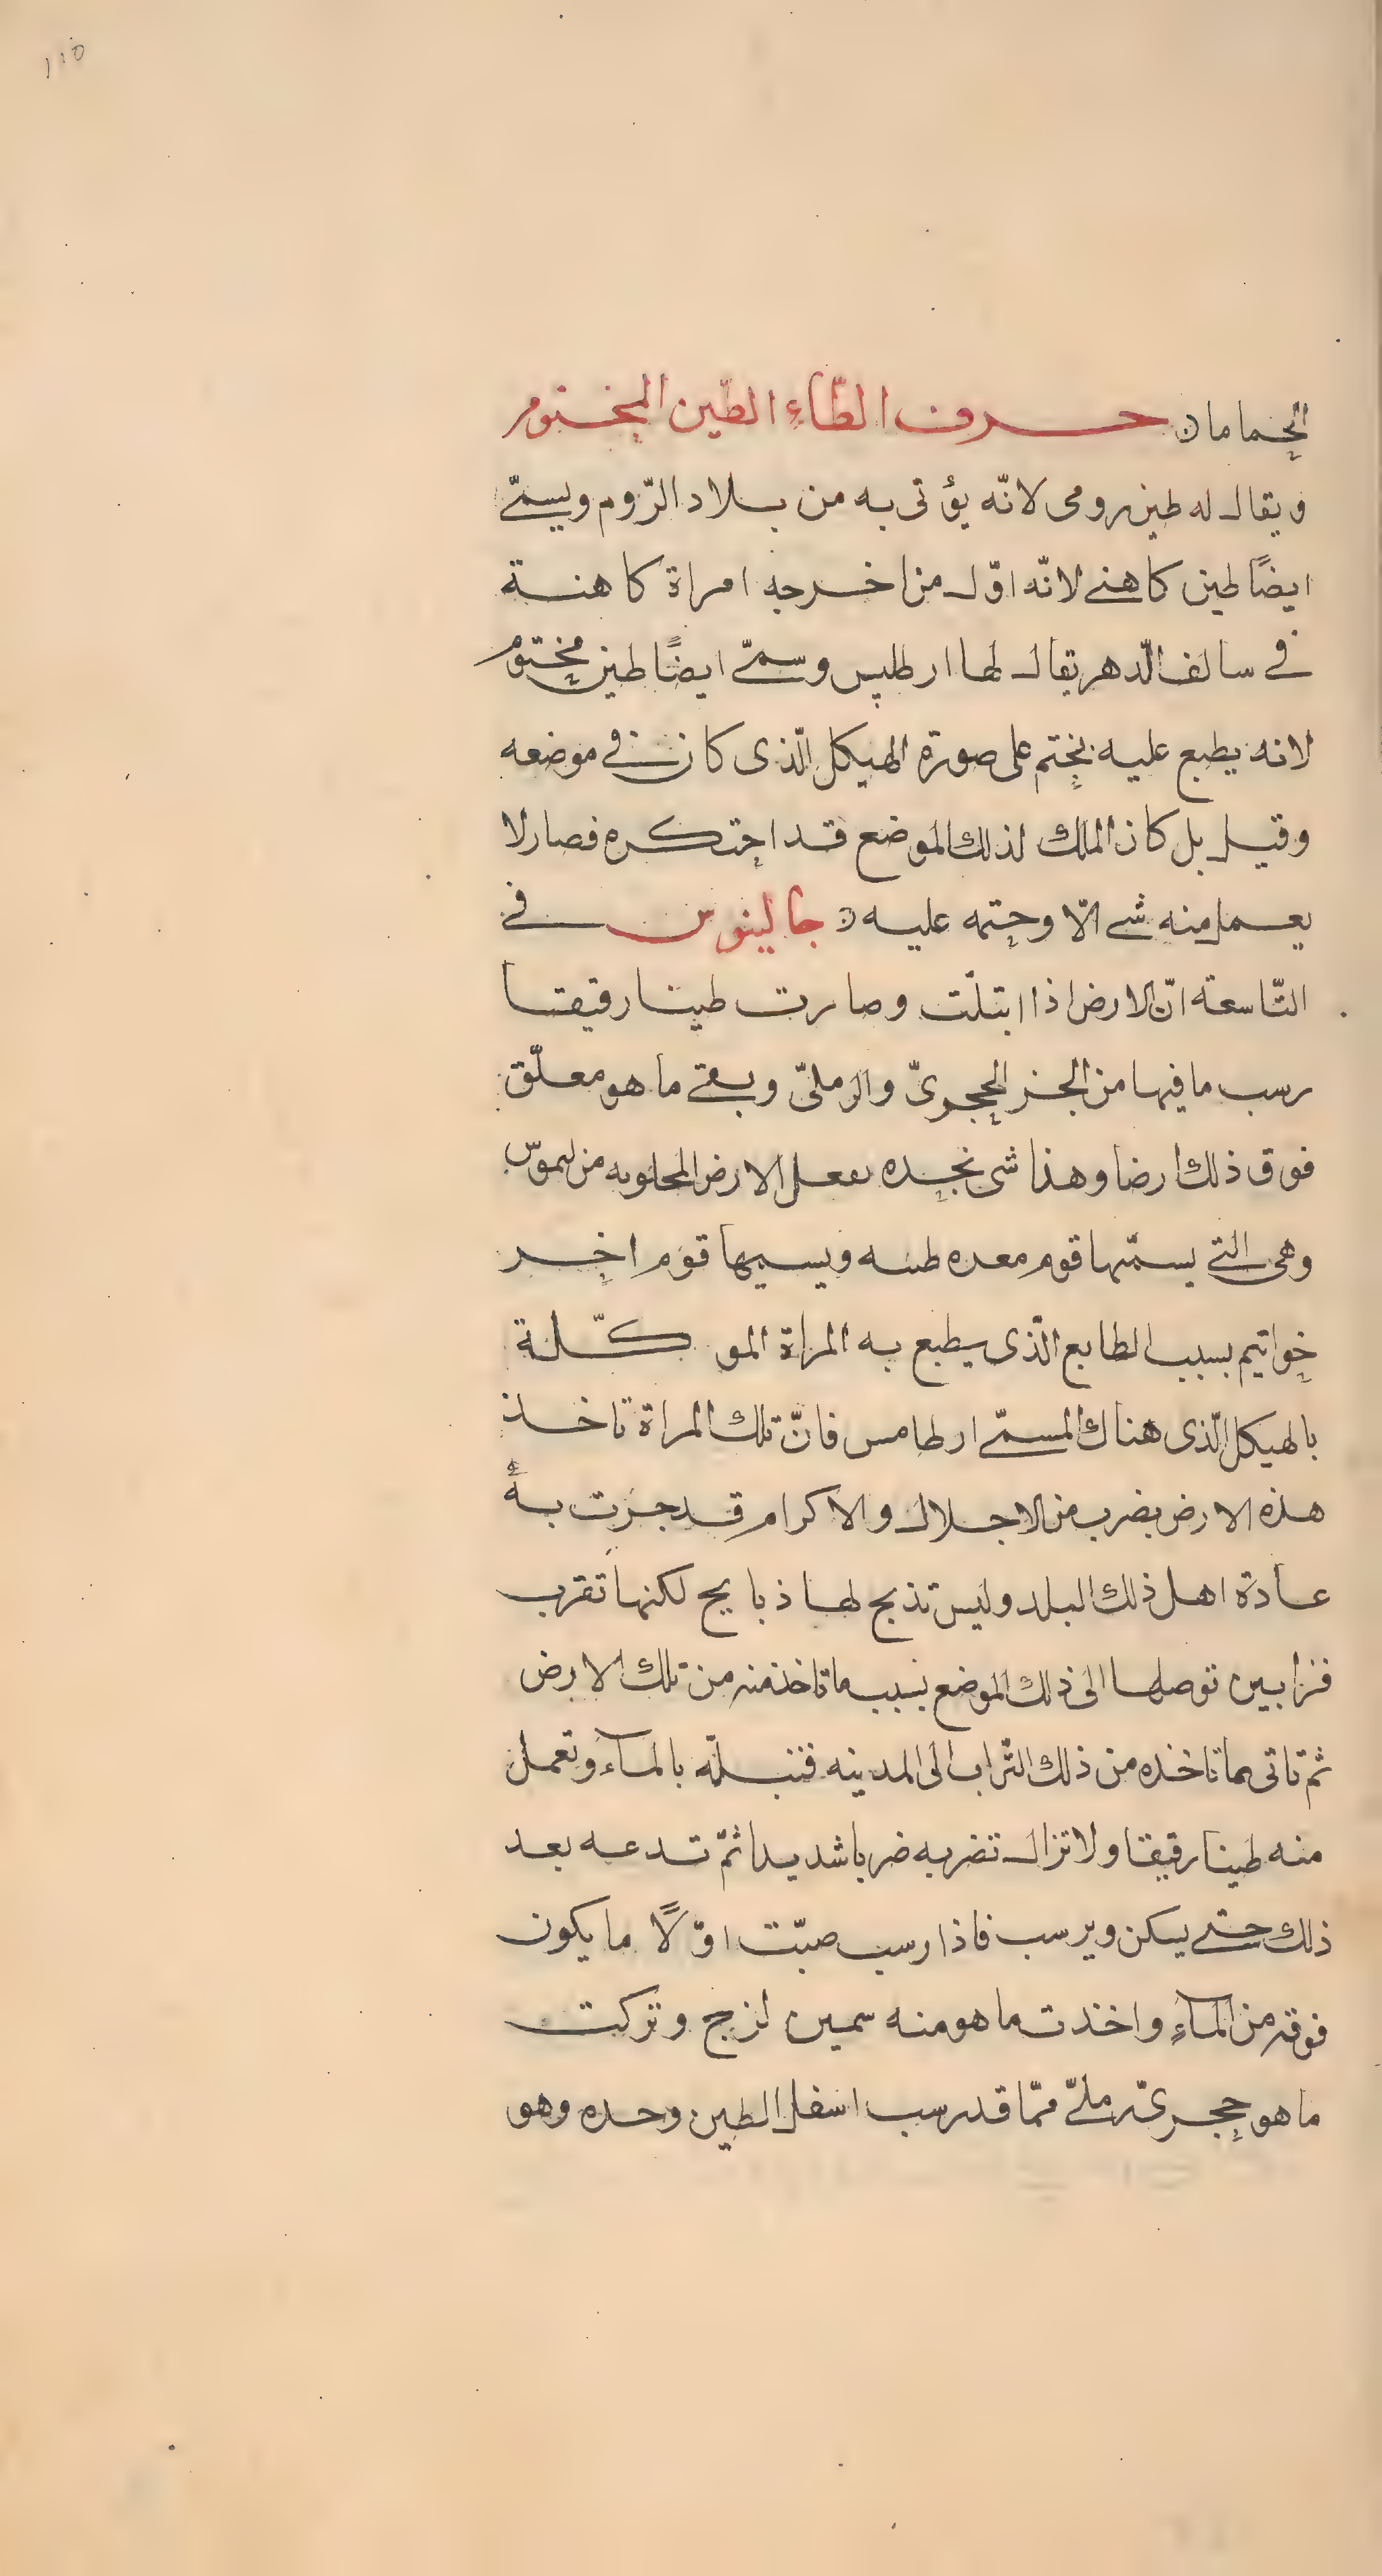 ١١٥
الحماما ن حرف الطّاءِ الطّين المختوم
ويقال له طين رومى لانّه يؤتى به من بلاد الرّوم ويسمّى
ايضًا طين كاهنى لانّه اوّل من اخرجه امراة كاهنة
فى سالف الّدهر يقال لها ارطلپس وسمّى ايضًا طين مختوم
لانه يطبع عليه بختم على صورة الهيكل الّذى كان فى موضعه
وقيل بل كان الملك لذلك الموضع قد احتكره فصار لا
يعمل منه شى الّا وختمه عليه ن جالينوس فى
التّاسعة انّ الارض اذا ابتلّت وصارت طينا رقيقا
رسب ما فيها من الجز الحجرىّ والرملىّ وبقى ما هو معلّق
فوق ذلك ارضا وهذا شى نجده ٮفعل الارض المحلوٮه من ليموس
وهى التى يسمّيها قوم معره طٮىه ويسيمها قوم اخر
خواتيم بسبب الطابع الّذى يطبع به المراة الموكّلة
بالهيكل الّذى هناك المسمّى ارطامس فانّ تلك المراة تاخذ
هذه الارض بضرب من الاجلال والاكرام قد جرت به
عادة اهل ذلك البلد وليس تذبح لها ذبايح لكنها تقرب
قرابين توصلها الى ذلك الموضع بسبب ما تاخذ منه من تلك الارض
ثم تاتى بما تاخذه من ذلك التّراب الى المدينه فتبلّه بالمآء وتعمل
منه طينا رقيقا ولا تزال تضربه ضربا شديدا ثمّ تدعه بعد
ذلك حتى يسكن ويرسب فاذا رسب صبّت اوّلًا ما يكون
فوقه من المآءِ واخذت ما هو منه سمين لزج وتركت
ما هو حجرىّ رملىّ ممّا قد رسب اسفل الطين وحده وهو